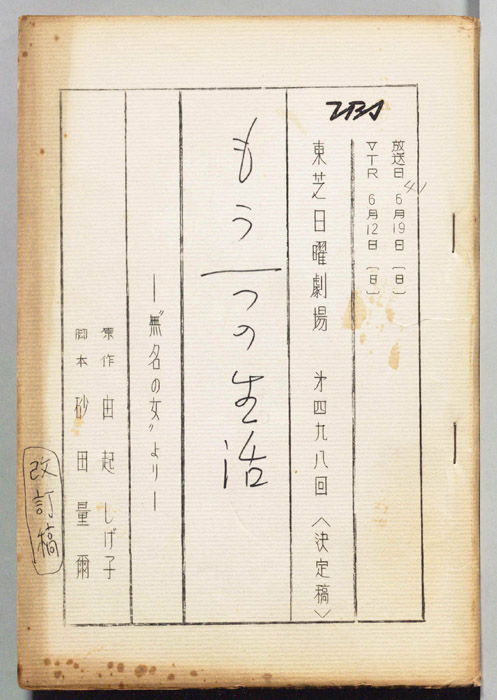 TBS
放送日 6月19日 〔日〕
41
VTR 6月12日 〔日〕
東芝日曜劇場 第四九八回 〈決定稿〉
もう一つの生活
―〝無名の女〟より―
原作 由起しげ子
脚本 砂田量爾
改訂稿